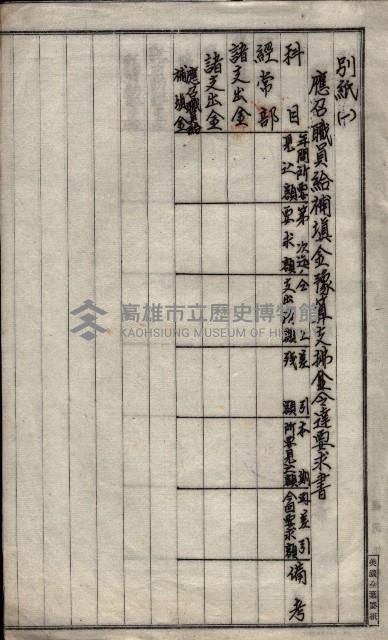 別紙(一)
應召職員給補填金豫算支拂金令達要求書
科目
年間所要見込額
第 次迄要求額
仝上支出済額
差引残額
本期所要見込額
差引今回要求額
備考
經常部
諸支出金
諸支出金
應召職員給補填金
高雄市立歷史博物館
KAOHSIUNG MUSEUM OF HISTORY